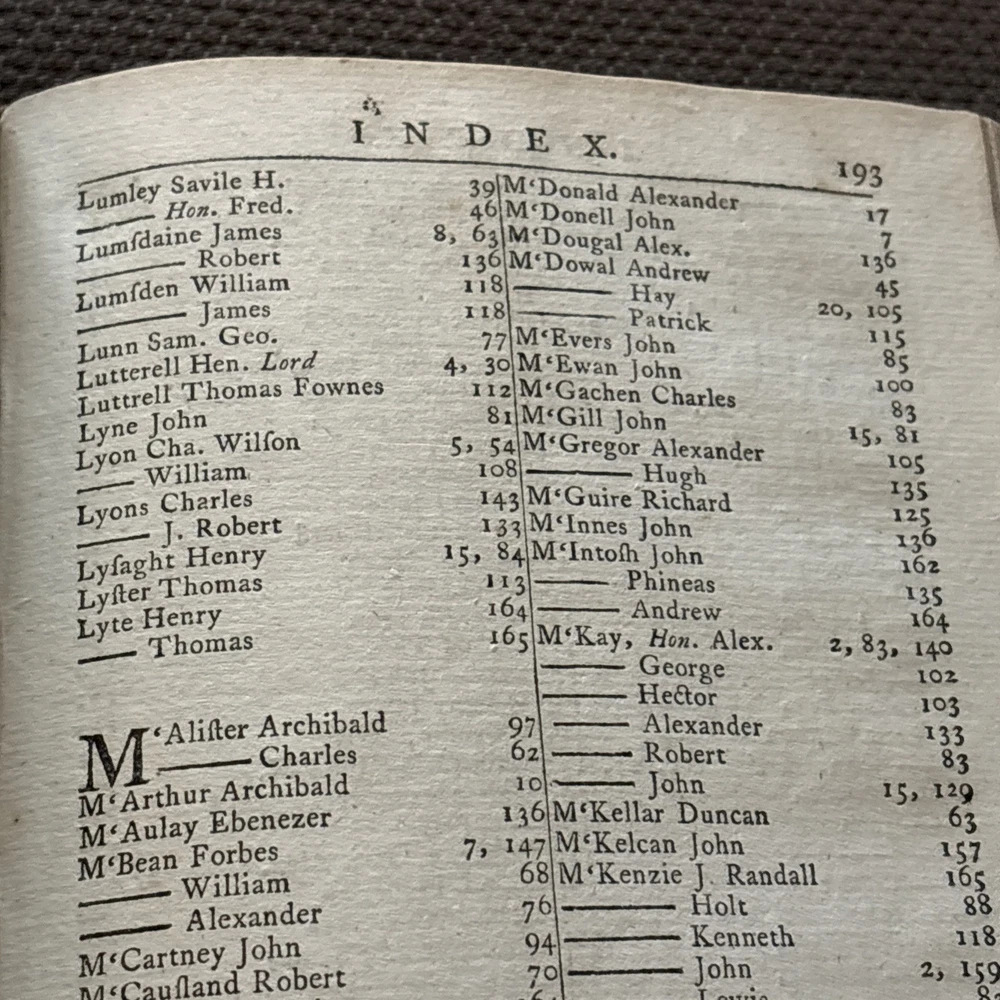 INDEX.
193
Lumley Savile H. 39
—— Hon. Fred. 46
Lumſdaine James 8, 63
—— Robert 136
Lumſden William 118
—— James 118
Lunn Sam. Geo. 77
Lutterell Hen. Lord 4, 30
Luttrell Thomas Fownes 112
Lyne John 81
Lyon Cha. Wilſon 5, 54
—— William 108
Lyons Charles 143
—— J. Robert 133
Lyſaght Henry 15, 84
Lyſter Thomas 113
Lyte Henry 164
—— Thomas 165
M‘Aliſter Archibald 97
—— Charles 62
M‘Arthur Archibald 10
M‘Aulay Ebenezer 136
M‘Bean Forbes 7, 147
—— William 68
—— Alexander 76
M‘Cartney John 94
M‘Cauſland Robert 70
M‘Donald Alexander 17
M‘Donell John 7
M‘Dougal Alex. 136
M‘Dowal Andrew 45
—— Hay 20, 105
—— Patrick 115
M‘Evers John 85
M‘Ewan John 100
M‘Gachen Charles 83
M‘Gill John 15, 81
M‘Gregor Alexander 105
—— Hugh 135
M‘Guire Richard 125
M‘Innes John 136
M‘Intoſh John 162
—— Phineas 135
—— Andrew 164
M‘Kay, Hon. Alex. 2, 83, 140
—— George 102
—— Hector 103
—— Alexander 133
—— Robert 83
—— John 15, 129
M‘Kellar Duncan 63
M‘Kelcan John 157
M‘Kenzie J. Randall 165
—— Holt 88
—— Kenneth 118
—— John 2, 159